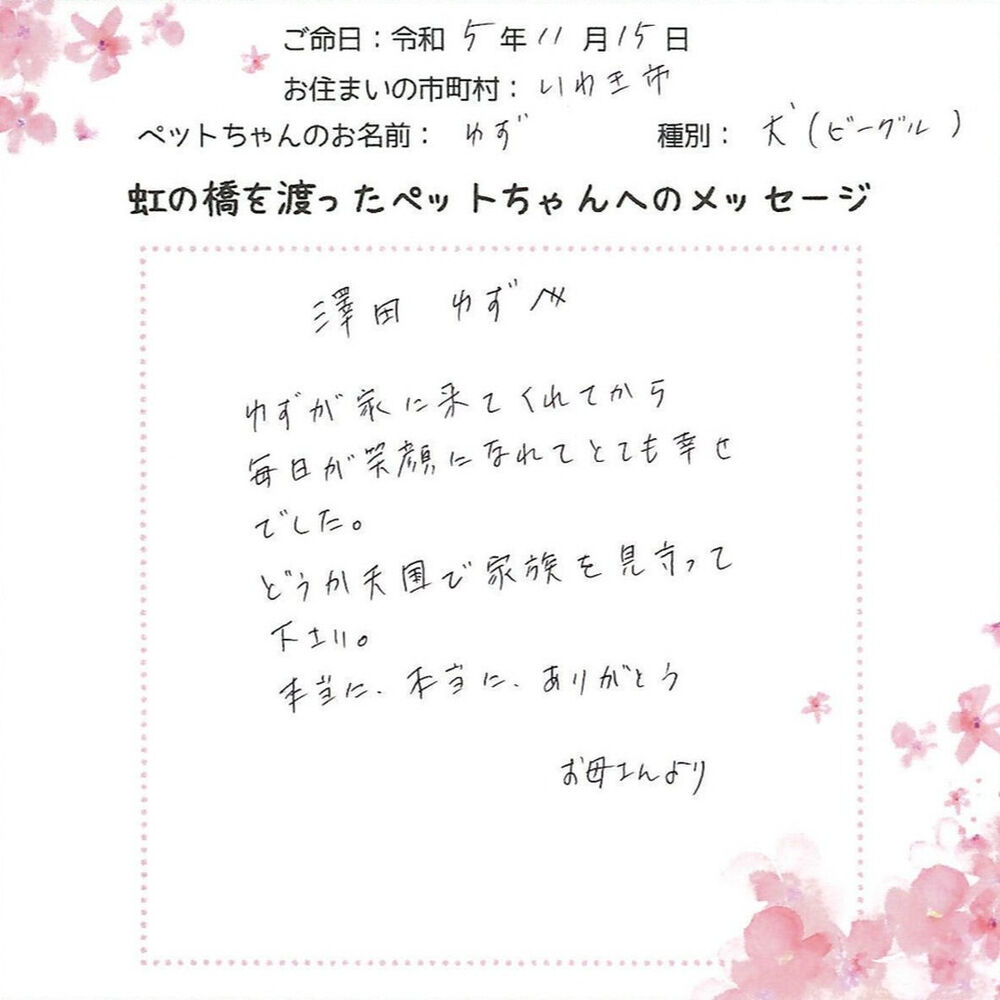 ご命日：令和 5 年 11 月 15 日
お住まいの市町村： いわき市
ペットちゃんのお名前： ゆず 種別： 犬（ビーグル）
虹の橋を渡ったペットちゃんへのメッセージ
澤田 ゆずへ
ゆずが家に来てくれてから
毎日が笑顔になれてとても幸せ
でした。
どうか天国で家族を見守って
下さい。
本当に、本当に、ありがとう
お母さんより